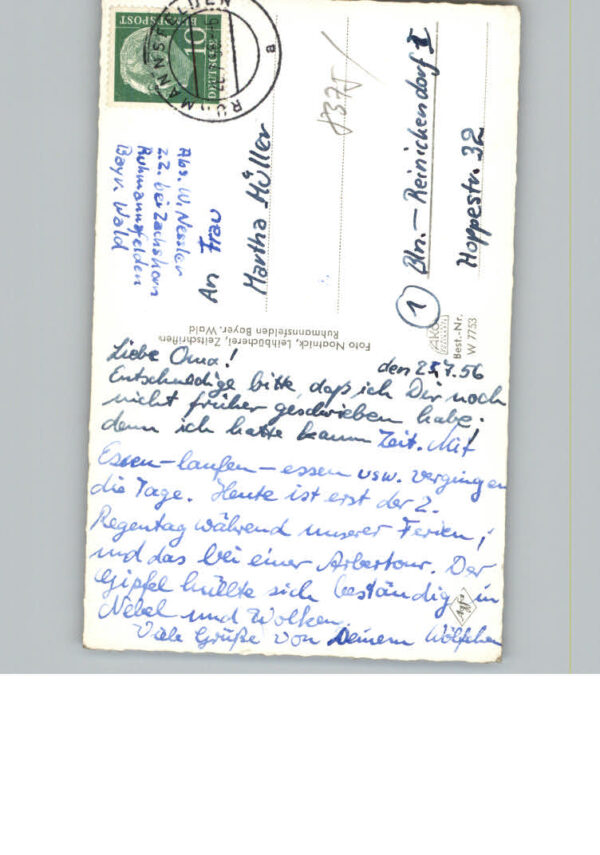 DEUTSCHE
BUNDESPOST
10
RUHMANNSFELDEN
a
Abs. W. Nessler
z.Z. bei Zachskorn
Ruhmannsfelden
Bayr. Wald
An Frau
Martha Müller
8375/
① Bln. – Reinickendorf I
Hoppestr. 32
Foto Noatnick, Leihbücherei, Zeitschriften
Ruhmannsfelden Bayer. Wald
Best.-Nr.
W 7753
den 25.7.56
Liebe Oma!
Entschuldige bitte, daß ich Dir noch
nicht früher geschrieben habe;
denn ich hatte kaum Zeit. Mit
Essen – laufen – essen usw. vergingen
die Tage. Heute ist erst der 2.
Regentag während unserer Ferien,
und das bei einer Arbertour. Der
Gipfel hüllte sich beständig in
Nebel und Wolken.
Viele Grüße von Deinem Wölfchen
Agfa